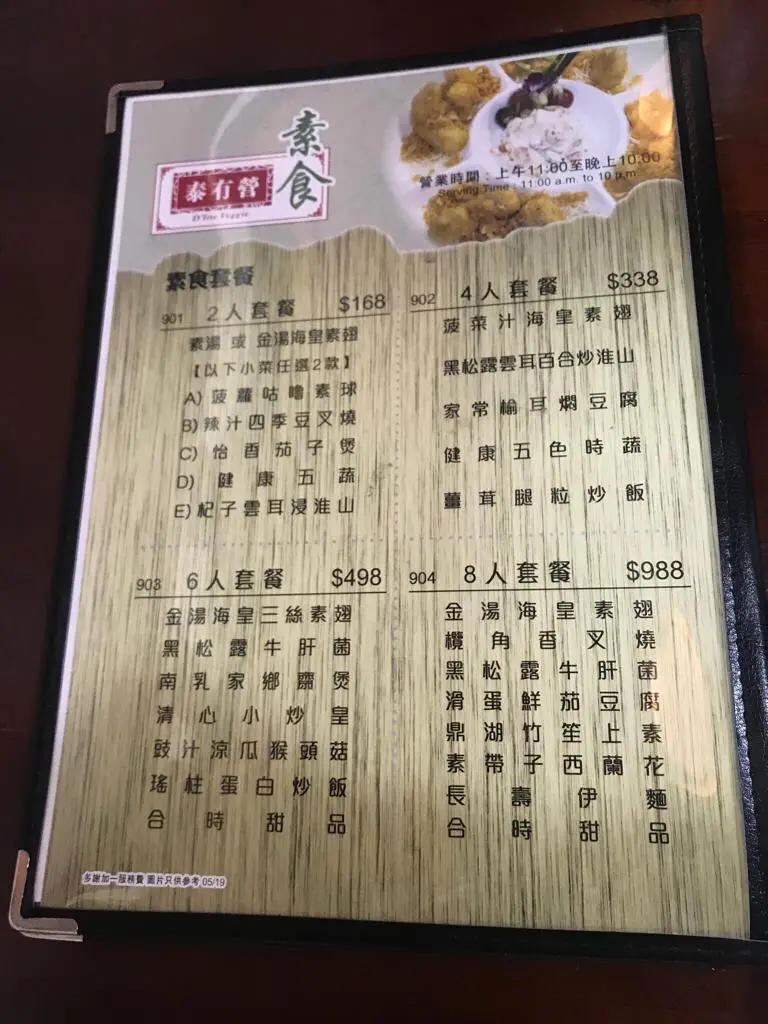 素食
泰有營
D'Tox Veggie
營業時間：上午11:00至晚上10:00
Serving Time : 11:00 a.m. to 10 p.m.
素食套餐
901 2人套餐 $168
素湯 或 金湯海皇素翅
【以下小菜任選2款】
A) 菠蘿咕嚕素球
B) 辣汁四季豆叉燒
C) 怡香茄子煲
D) 健康五蔬
E) 杞子雲耳浸淮山
902 4人套餐 $338
菠菜汁海皇素翅
黑松露雲耳百合炒淮山
家常榆耳燜豆腐
健康五色時蔬
薑茸腿粒炒飯
903 6人套餐 $498
金湯海皇三絲素翅
黑松露牛肝菌
南乳家鄉齋煲
清心小炒皇
豉汁涼瓜猴頭菇
瑤柱蛋白炒飯
合時甜品
904 8人套餐 $988
金湯海皇素翅
欖角香叉燒
黑松露牛肝菌
滑蛋鮮茄豆腐
鼎湖竹笙上素
素帶子西蘭花
長壽伊麵
合時甜品
多謝加一服務費 圖片只供參考 05/19